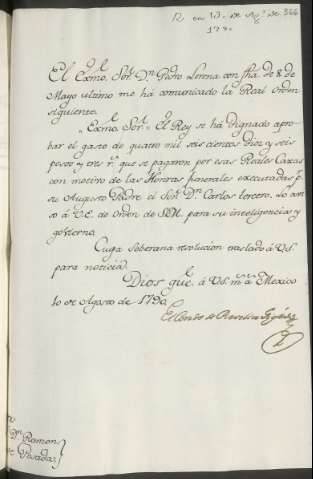 R. en 10. de Ag.to de 366
1790
El Exmo. Sor. Dn. Pedro Lerena con fha. de 8 de
Mayo ultimo me há comunicado la Real orden
siguiente.
"Exmo. Sor. = El Rey se há dignado apro-
bar el gasto de quatro mil seis cientos diez y seis
pesos y tres rs. que se pagaron por esas Reales Caxas
con motivo de las Honras funerales executadas pr.
su Augusto Padre el Sor. Dn. Carlos tercero. Lo avi-
so á V.E. de orden de S.M. para su inteligencia y
govierno.
Cuya soberana resolucion traslado á V.S.
para noticia.
Dios gue. á V.S. ms. as. Mexico
10 de Agosto de 1790.
El Conde de Revilla Gigedo
Dn. Ramon
de Posadas